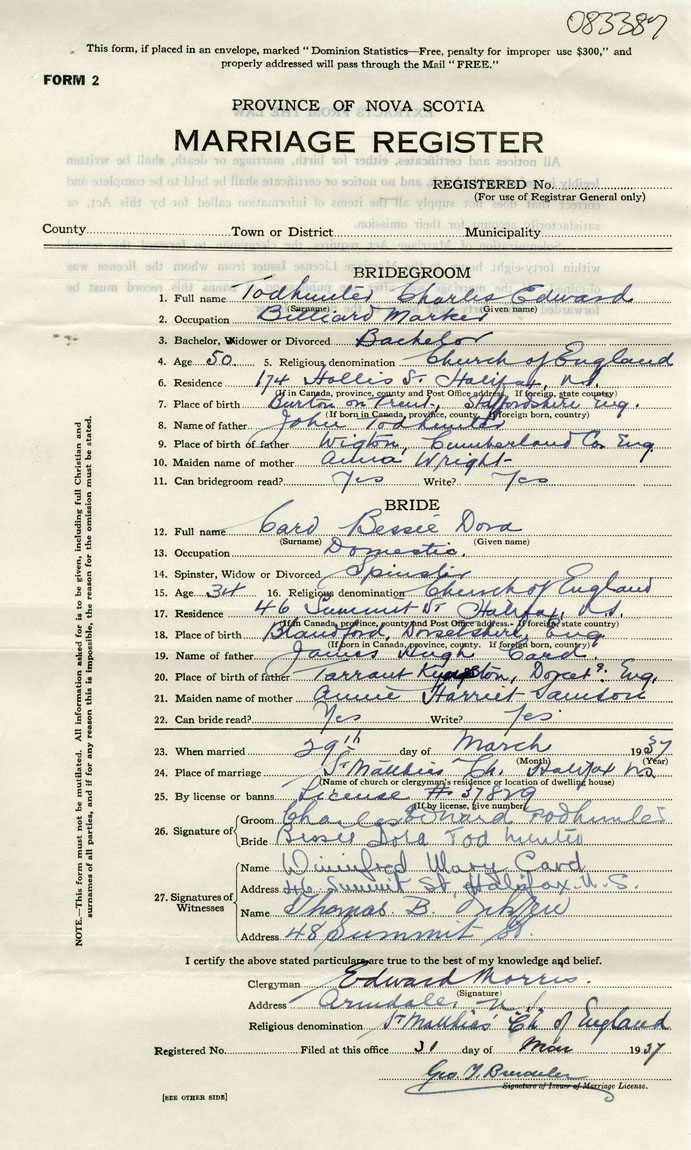 083387
This form, if placed in an envelope, marked "Dominion Statistics—Free, penalty for improper use $300," and
properly addressed will pass through the Mail "FREE."
FORM 2
PROVINCE OF NOVA SCOTIA
MARRIAGE REGISTER
REGISTERED No.
(For use of Registrar General only)
County Town or District Municipality
BRIDEGROOM
1. Full name Todhunter Charles Edward
(Surname) (Given name)
2. Occupation Billiard Marker
3. Bachelor, Widower or Divorced Bachelor
4. Age 50 5. Religious denomination Church of England
6. Residence 174 Hollis St Halifax, N.S.
(If in Canada, province, county and Post Office address. If foreign, state country)
7. Place of birth Burton on Trent, Staffordshire Eng.
(If born in Canada, province, county. If foreign born, country)
8. Name of father John Todhunter
9. Place of birth of father Wigton, Cumberland Co. Eng
10. Maiden name of mother Wright
11. Can bridegroom read? Yes Write? Yes
BRIDE
12. Full name Card Bessie Dora
(Surname) (Given name)
13. Occupation Domestic.
14. Spinster, Widow or Divorced Spinster
15. Age 34 16. Religious denomination Church of England
17. Residence 46 Summit St Halifax, N.S.
(If in Canada, province, county and Post Office address. If foreign, state country)
18. Place of birth Blandford, Dorsetshire, Eng
(If born in Canada, province, county. If foreign born, country)
19. Name of father James Hugh Card.
20. Place of birth of father Tarrant Eng.
21. Maiden name of mother Annie Harriet Samson
22. Can bride read? Yes Write? Yes
23. When married 29th day of March 1937
(Month) (Year)
24. Place of marriage St Matthias Ch. Halifax NS
(Name of church or clergyman's residence or location of dwelling house)
25. By license or banns License # 37829
(If by license, give number)
26. Signature of Groom Charles Edward Todhunter
Bride Bessie Dora Todhunter
27. Signatures of Witnesses
Name Winifred Mary Card
Address 46 Summit St, Halifax. N.S.
Name Thomas. B.
Address 48 Summit St.
I certify the above stated particulars are true to the best of my knowledge and belief.
Clergyman Edward Morris.
(Signature)
Address Armdale, N.S.
Religious denomination St Matthias' Ch of England
Registered No. Filed at this office 31 day of Mar 1937
Geo. T.
Signature of Issuer of Marriage License.
[SEE OTHER SIDE]
NOTE.—This form must not be mutilated. All information asked for is to be given, including full Christian and
surnames of all parties, and if for any reason this is impossible, the reason for the omission must be stated.